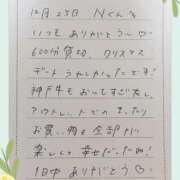 12月25日 Nくん♡
いつも ありがとう〜♡
600分貸切、クリスマス
デート うれしかったです!
神戸牛も おいしすぎたし、
アウトレットでの まったり
お買い物も 全部 が
楽しくて 幸せだったね!
1日中 ありがとう♡